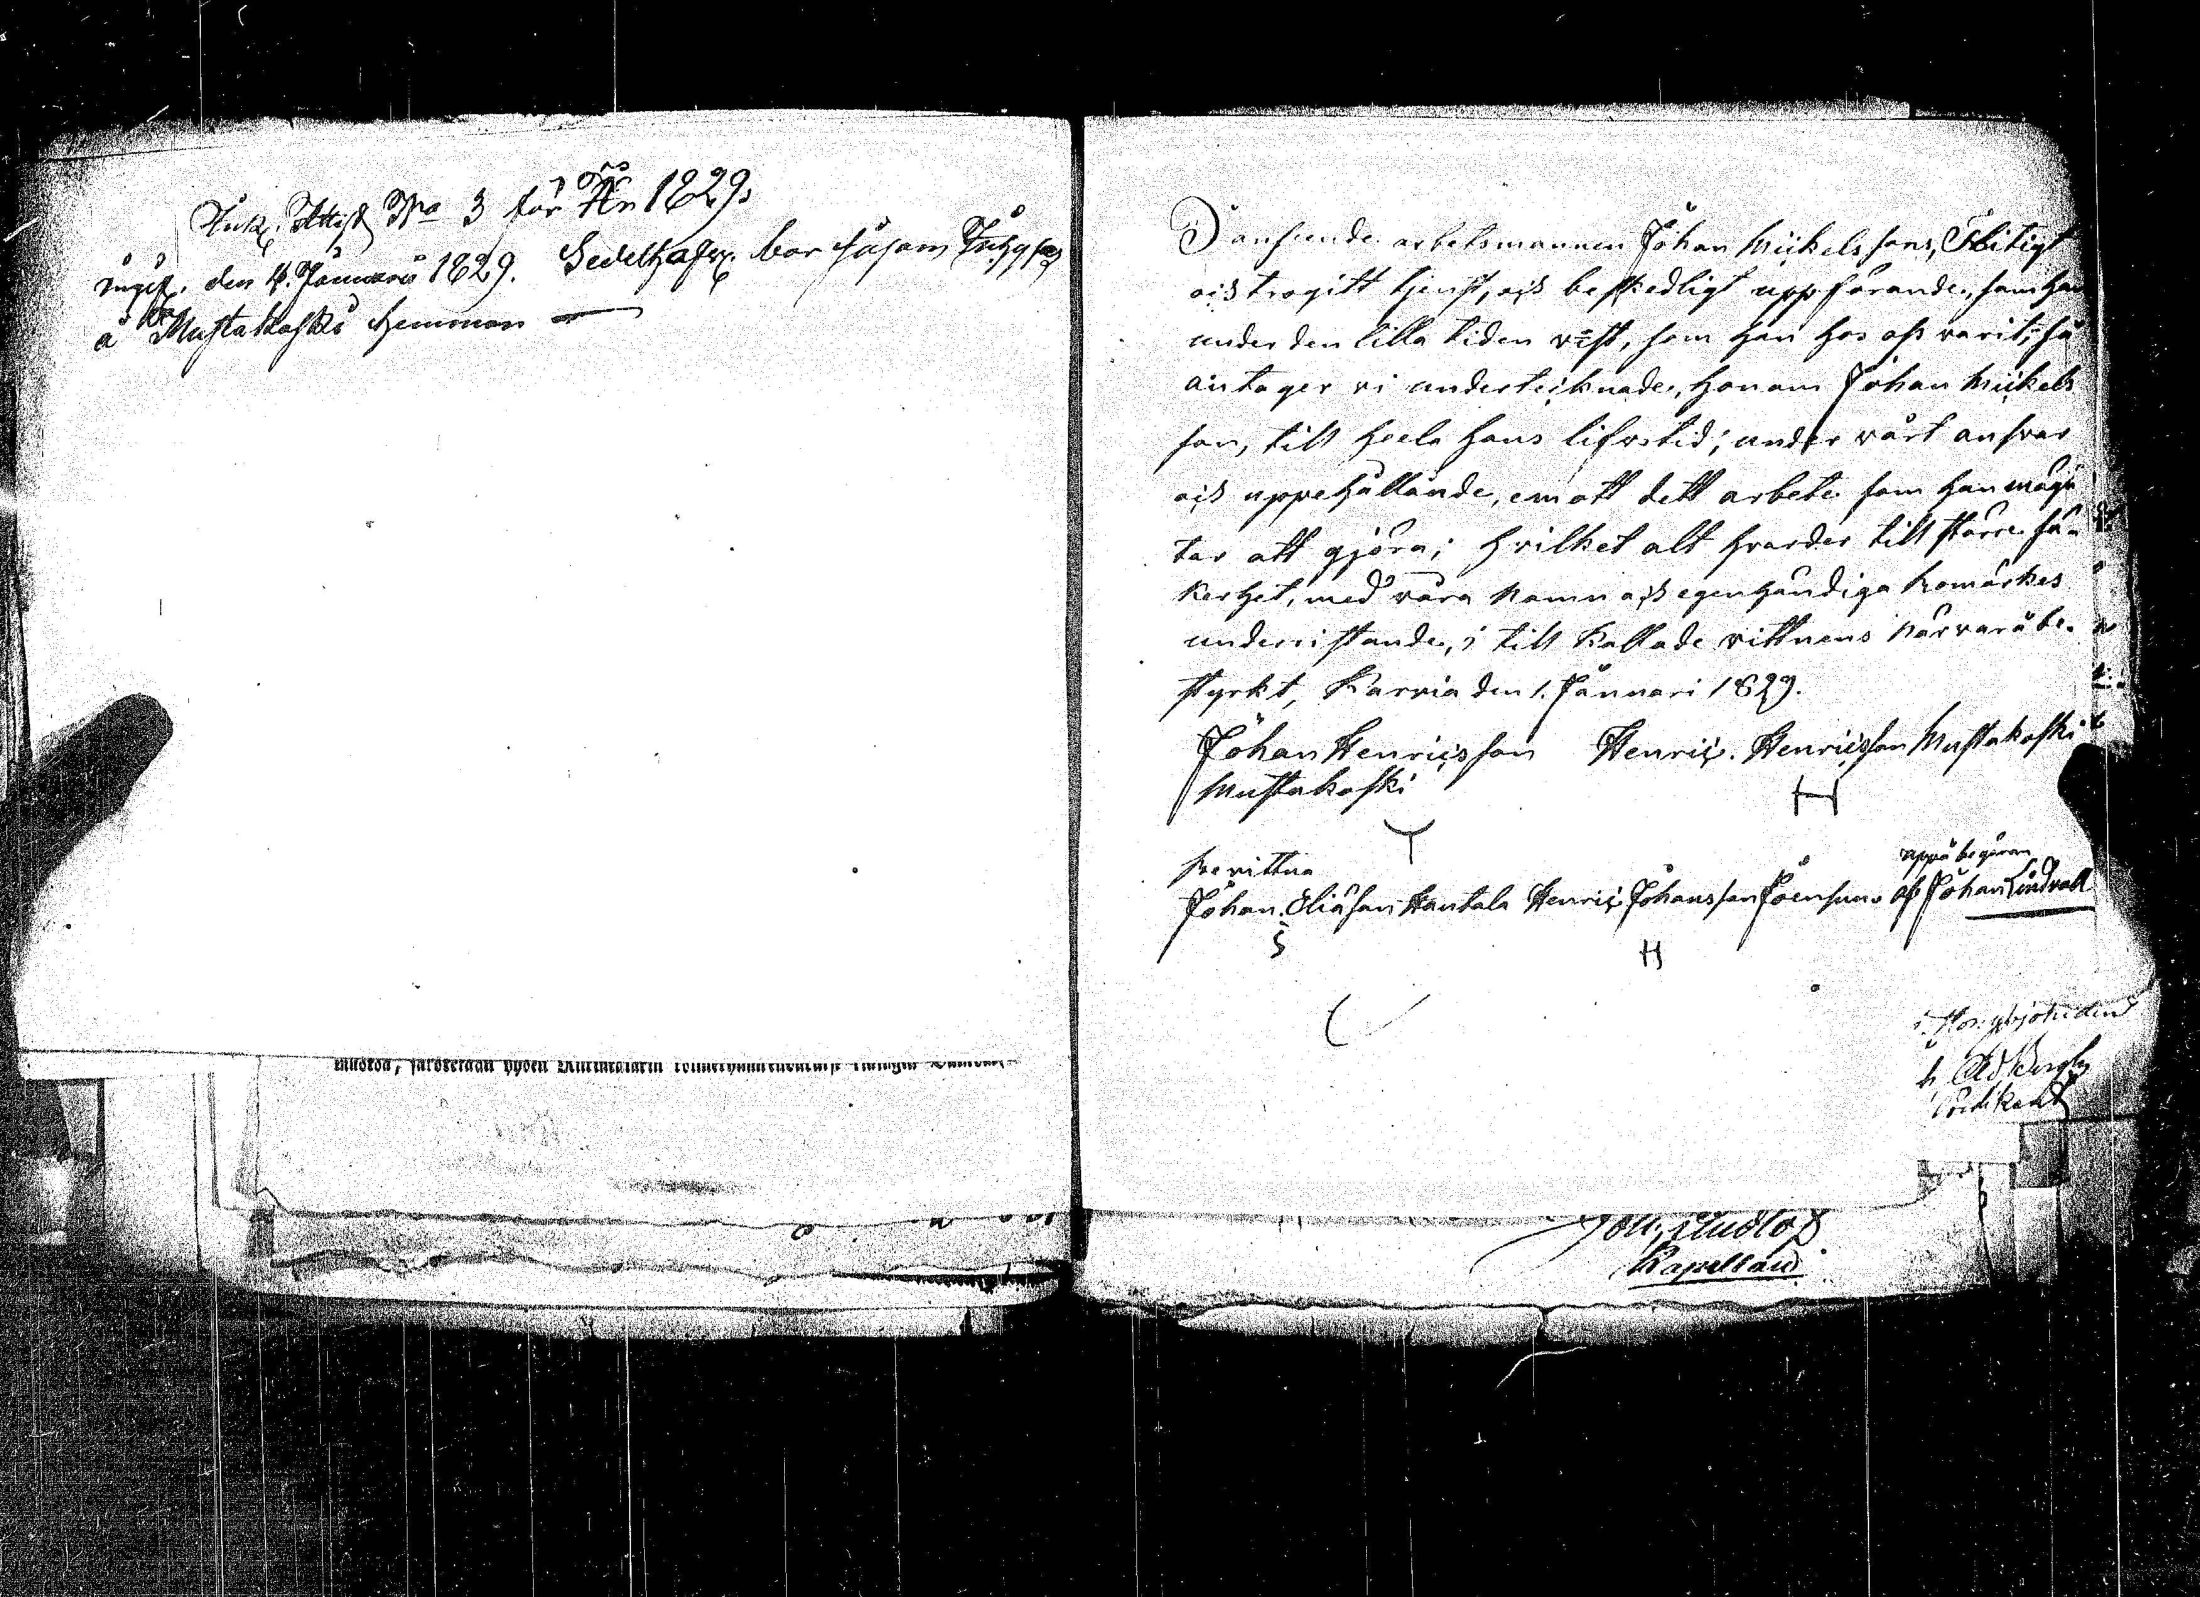 Ink. Attest No 3 för År 1829.
ingif. den 4. Januarii 1829. Sedelhafv. bor såsom Inhyses
å Mustakoski hemman
Danseende arbetsmannen Johan Mickels sons, Flitigt
och trogitt tjenst, och beskedligt uppförande, som han
under den lilla tiden vist, som han hos oss varit; så
antager vi underteicknade, honom Johan Mickels
son, till heela hans lifvstid; under vårt ansvar
och uppehällande, emott dett arbete som han mägh
tar att gjöra; hvilket alt hvarder till starre sä=
kerhet, med våra namn och egenhändiga bomärkes
underristande, i till kallade vittnens närvarå be=
styrkt, Karvia den 1. Januari 1829.
Johan Henricsson Henric. Henricsson Mustakoski
Mustakoski
H
uppå begäran
Bevittna
Johan. Eliasson Hantala Henric Johansson Joensuu af Johan Lindvall
H
Kapellan